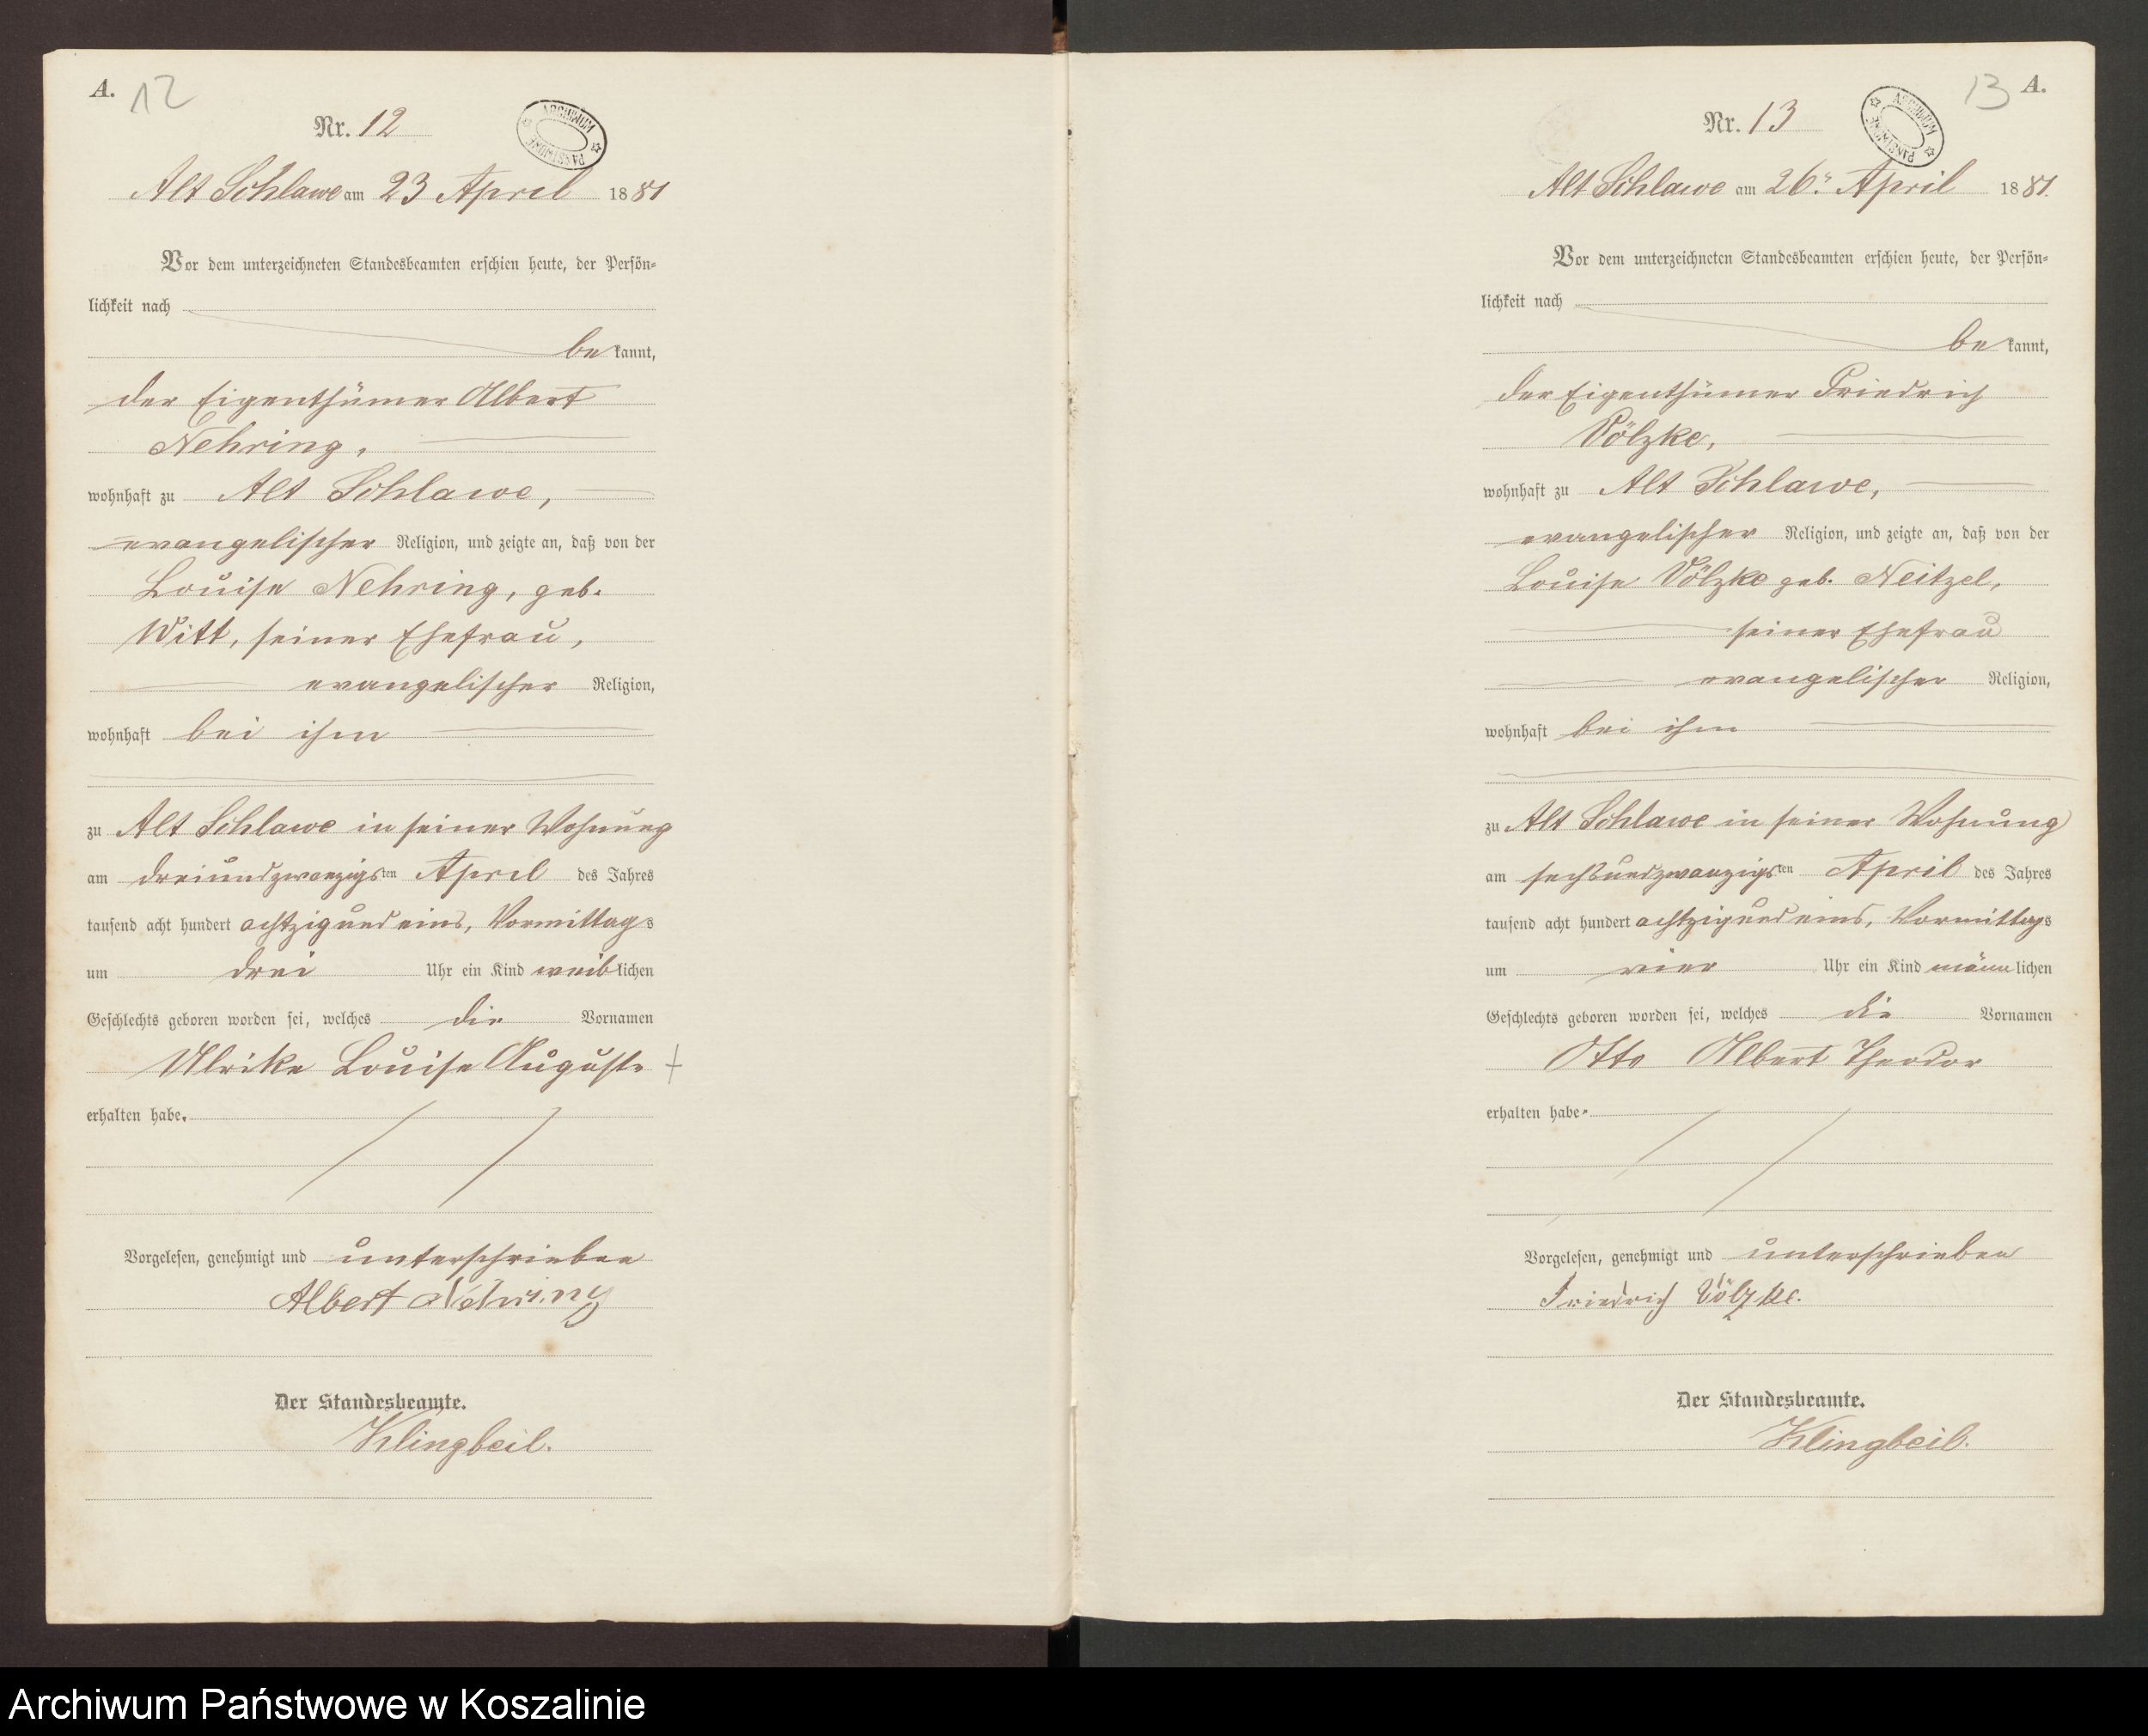 A. 12
Nr. 12
ARCHIWUM PAŃSTWOWE
Alt Schlawe am 23 April 1881
Vor dem unterzeichneten Standesbeamten erschien heute, der Persön-
lichkeit nach
bekannt,
der Eigenthümer Albert
Nehring,
wohnhaft zu Alt Schlawe,
evangelischer Religion, und zeigte an, daß von der
Louise Nehring, geb.
Witt, seiner Ehefrau,
evangelischer Religion,
wohnhaft bei ihm
zu Alt Schlawe in seiner Wohnung
am dreiundzwanzigsten April des Jahres
tausend acht hundert achtzig und eins, Vormittags
um drei Uhr ein Kind weiblichen
Geschlechts geboren worden sei, welches die Vornamen
Ulrike Louise Auguste +
erhalten habe.
Vorgelesen, genehmigt und unterschrieben
Albert Nehring
Der Standesbeamte.
Klingbeil.
13 A.
Nr. 13
ARCHIWUM PAŃSTWOWE
Alt Schlawe am 26. April 1881.
Vor dem unterzeichneten Standesbeamten erschien heute, der Persön-
lichkeit nach
bekannt,
der Eigenthümer Friedrich
Völzke,
wohnhaft zu Alt Schlawe,
evangelischer Religion, und zeigte an, daß von der
Louise Völzke geb. Neitzel,
seiner Ehefrau
evangelischer Religion,
wohnhaft bei ihm
zu Alt Schlawe in seiner Wohnung
am sechsundzwanzigsten April des Jahres
tausend acht hundert achtzig und eins, Vormittags
um vier Uhr ein Kind männlichen
Geschlechts geboren worden sei, welches die Vornamen
Otto Albert Theodor
erhalten habe.
Vorgelesen, genehmigt und unterschrieben
Friedrich Völzke.
Der Standesbeamte.
Klingbeil.
Archiwum Państwowe w Koszalinie